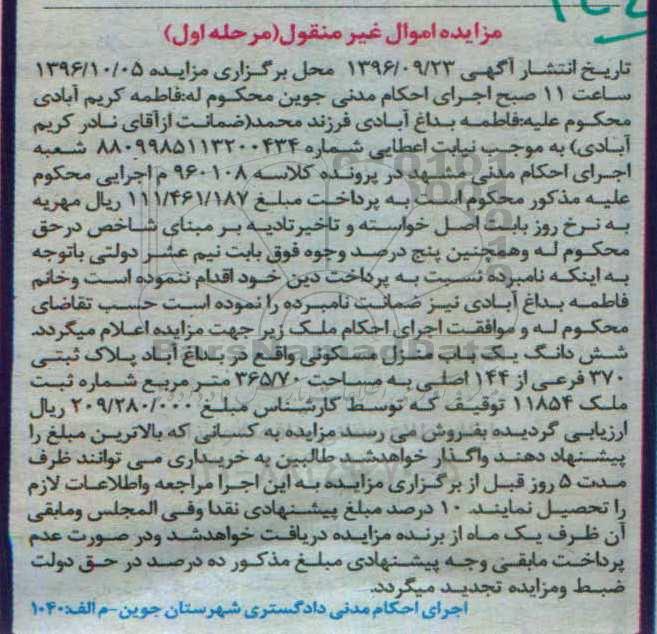 مزایده اموال غیر منقول(مرحله اول)
تاریخ انتشار آگهی ۱۳۹۶/۰۹/۲۳ محل برگزاری مزایده ۱۳۹۶/۱۰/۰۵
ساعت ۱۱ صبح اجرای احکام مدنی جوین محکوم له:فاطمه کریم آبادی
محکوم علیه:فاطمه بداغ آبادی فرزند محمد(ضمانت ازآقای نادر کریم
آبادی) به موجب نیابت اعطایی شماره ۸۸۰۹۹۸۵۱۱۳۲۰۰۴۳۴ شعبه
اجرای احکام مدنی مشهد در پرونده کلاسه ۹۶۰۱۰۸ م اجرایی محکوم
علیه مذکور محکوم است به پرداخت مبلغ ۱۱۱/۴۶۱/۱۸۷ ریال مهریه
به نرخ روز بابت اصل خواسته و تاخیرتادیه بر مبنای شاخص درحق
محکوم له وهمچنین پنج درصد وجوه فوق بابت نیم عشر دولتی باتوجه
به اینکه نامبرده نسبت به پرداخت دین خود اقدام ننموده است وخانم
فاطمه بداغ آبادی نیز ضمانت نامبرده را نموده است حسب تقاضای
محکوم له و موافقت اجرای احکام ملک زیر جهت مزایده اعلام میگردد.
شش دانگ یک باب منزل مسکونی واقع در بداغ آباد پلاک ثبتی
۳۷۰ فرعی از ۱۴۴ اصلی به مساحت ۳۶۵/۷۰ متر مربع شماره ثبت
ملک ۱۱۸۵۴ توقیف که توسط کارشناس مبلغ ۲۰۹/۲۸۰/۰۰۰ ریال
ارزیابی گردیده بفروش می رسد مزایده به کسانی که بالاترین مبلغ را
پیشنهاد دهند واگذار خواهدشد طالبین به خریداری می توانند ظرف
مدت ۵ روز قبل از برگزاری مزایده به این اجرا مراجعه واطلاعات لازم
را تحصیل نمایند. ۱۰ درصد مبلغ پیشنهادی نقدا وفی المجلس ومابقی
آن ظرف یک ماه از برنده مزایده دریافت خواهدشد ودر صورت عدم
پرداخت مابقی وجه پیشنهادی مبلغ مذکور ده درصد در حق دولت
ضبط ومزایده تجدید میگردد.
اجرای احکام مدنی دادگستری شهرستان جوین-م الف:۱۰۴۰
ParsNamadData